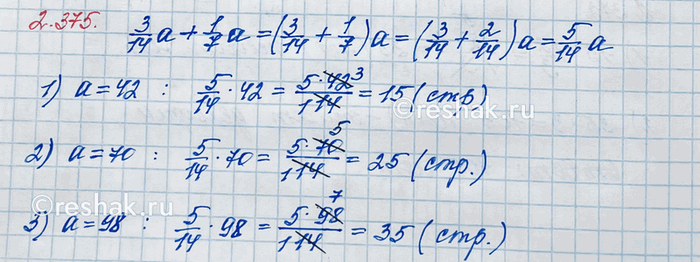 2.375. 3/14 a + 1/7 a = (3/14 + 1/7) a = (3/14 + 2/14) a = 5/14 a
1) a = 42 : 5/14 · 42 = 5 · 42 3 / 1 14 = 15 (стр)
2) a = 70 : 5/14 · 70 = 5 · 70 5 / 1 14 = 25 (стр.)
3) a = 98 : 5/14 · 98 = 5 · 98 7 / 1 14 = 35 (стр.)
©reshak.ru